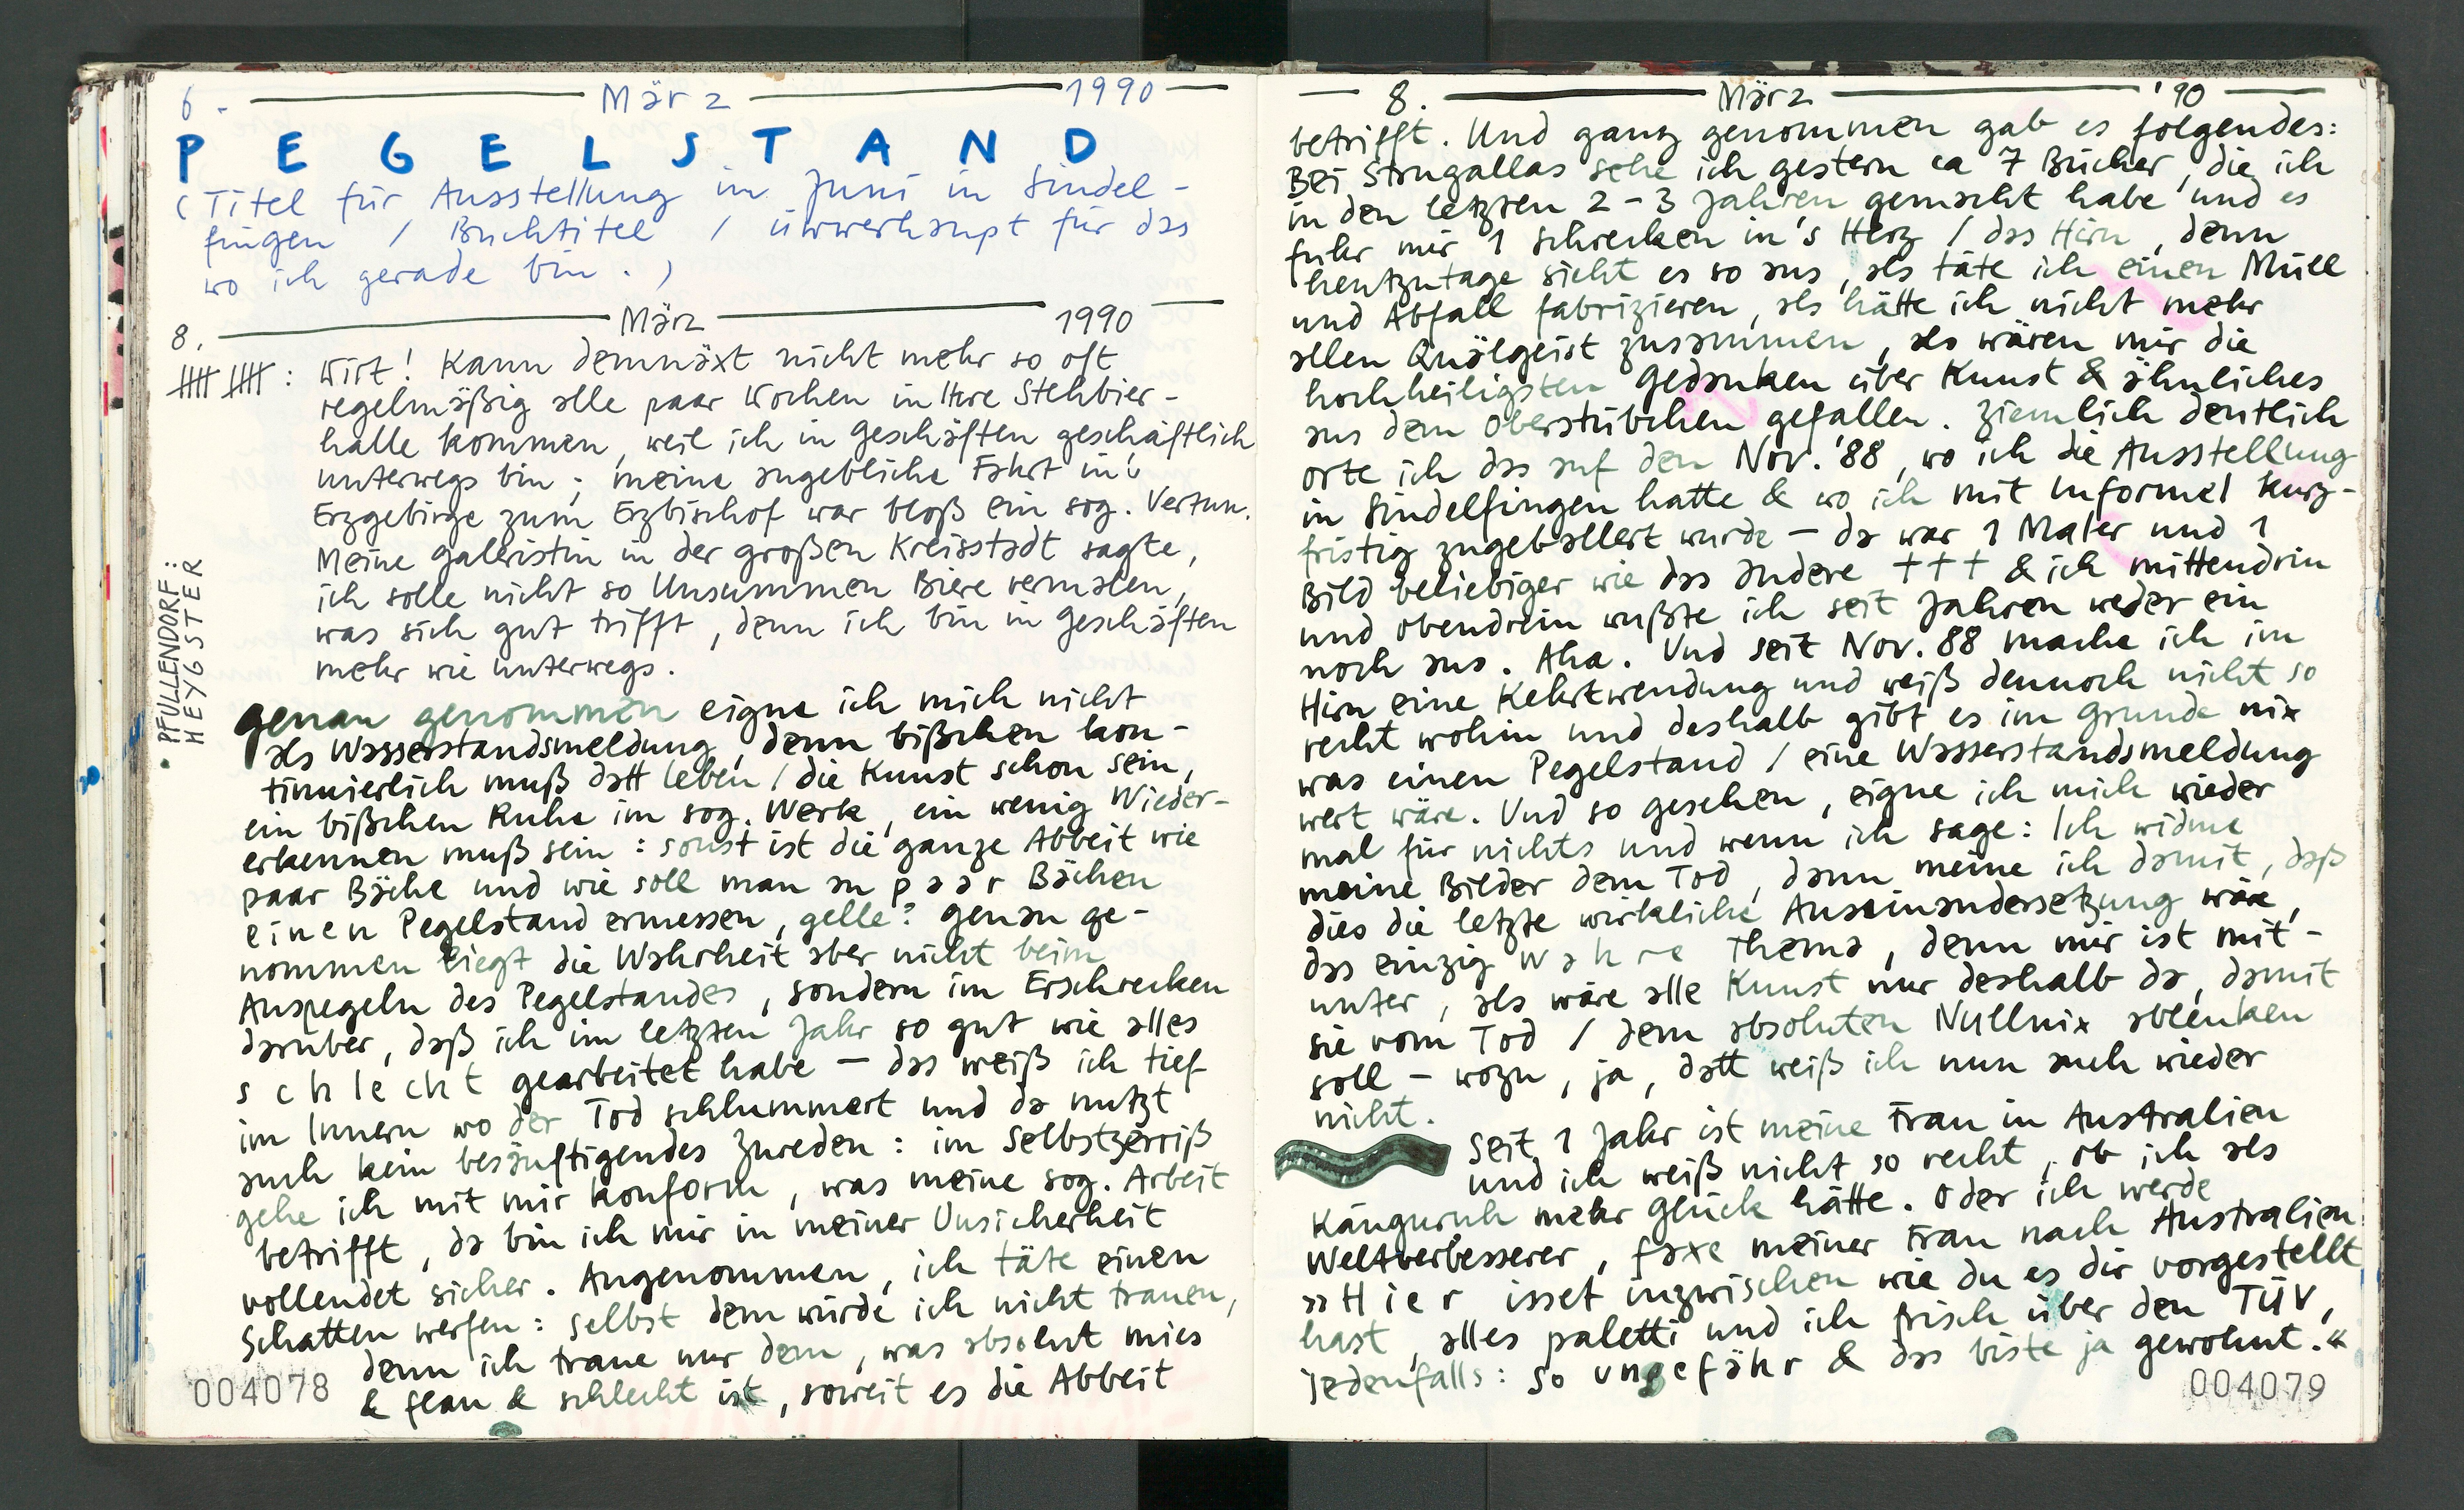 6. März 1990
PEGELSTAND
(Titel für Ausstellung im Juni in Sindel-
fingen / Buchtitel / üwwerhaupt für das
wo ich gerade bin.)
8. März 1990
Wirt! Kann demnäxt nicht mehr so oft
regelmäßig alle paar Wochen in Ihre Stehbier-
halle kommen, weil ich in Geschäften geschäftlich
unterwegs bin; meine angebliche Fahrt in's
Erzgebirge zum Erzbischof war bloß ein sog. Vertun.
Meine Galeristin in der großen Kreisstadt sagte,
ich solle nicht so Unsummen Biere vermalen,
was sich gut trifft, denn ich bin in Geschäften
mehr wie unterwegs.
PFULLENDORF:
HEYGSTER
genau genommen eigne ich mich nicht
als Wasserstandsmeldung, denn bißchen kon-
tinuierlich muß datt Leben / die Kunst schon sein,
ein bißchen Ruhe im sog. Werk, ein wenig Wieder-
erkennen muß sein: sonst ist die ganze Abbeit wie
paar Bäche und wie soll man an paar Bächen
einen Pegelstand ermessen, gelle? Genau ge-
nommen liegt die Wahrheit aber nicht beim
Auspegeln des Pegelstandes, sondern im Erschrecken
darüber, daß ich im letzten Jahr so gut wie alles
schlecht gearbeitet habe – das weiß ich tief
im Innern wo der Tod schlummert und da nutzt
auch kein besänftigendes Zureden: im Selbstzerriß
gehe ich mit mir konform, was meine sog. Arbeit
betrifft, da bin ich mir in meiner Unsicherheit
vollendet sicher. Angenommen, ich täte einen
Schatten werfen: selbst dem würde ich nicht trauen,
denn ich traue nur dem, was absolut mies
& flau & schlecht ist, soweit es die Abbeit
004078
8. März '90
betrifft. Und ganz genommen gab es folgendes:
Bei Strugallas sehe ich gestern ca 7 Bücher, die ich
in den letzten 2-3 Jahren gemacht habe und es
fuhr mir 1 Schrecken in's Herz / das Hirn, denn
heutzutage sieht es so aus, als täte ich einen Müll
und Abfall fabrizieren, als hätte ich nicht mehr
allen Quälgeist zusammen, als wären mir die
hochheiligsten Gedanken über Kunst & ähnliches
aus dem Oberstübchen gefallen. Ziemlich deutlich
orte ich das auf den Nov. '88, wo ich die Ausstellung
in Sindelfingen hatte & wo ich mit Informel kurz-
fristig zugeballert wurde – da war 1 Maler und 1
Bild beliebiger wie das andere +++ & ich mittendrin
und obendrein wußte ich seit Jahren weder ein
noch aus. Aha. Und seit Nov. 88 mache ich im
Hirn eine Kehrtwendung und weiß dennoch nicht so
recht wohin und deshalb gibt es im Grunde nix
was einen Pegelstand / eine Wasserstandsmeldung
wert wäre. Und so gesehen, eigne ich mich wieder
mal für nichts und wenn ich sage: Ich widme
meine Bilder dem Tod, dann meine ich damit, daß
dies die letzte wirkliche Auseinandersetzung wäre,
das einzig wahre Thema, denn mir ist mit-
unter, als wäre alle Kunst nur deshalb da, damit
sie vom Tod / dem absoluten Nullnix ablenken
soll – wozu, ja, datt weiß ich nun auch wieder
nicht.
Seit 1 Jahr ist meine Frau in Australien
und ich weiß nicht so recht, ob ich als
Känguruh mehr Glück hätte. Oder ich werde
Weltverbesserer, faxe meiner Frau nach Australien:
»Hier isset inzwischen wie du es dir vorgestellt
hast, alles paletti und ich frisch über den TÜV,
jedenfalls: so ungefähr & das biste ja gewohnt.«
004079